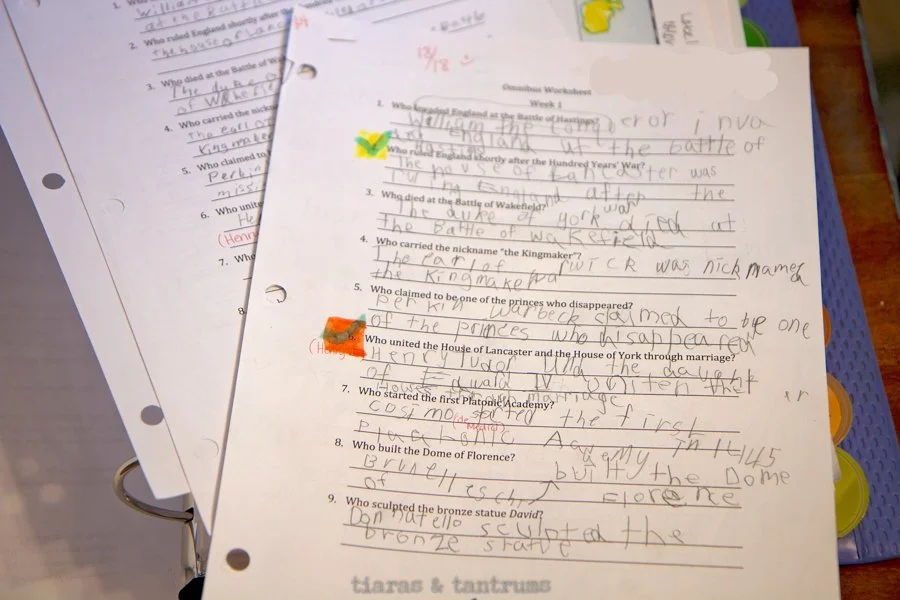 1.
William
at the Battle
2. Who ruled England shortly after the
The house of Lanc
3. Who died at the Battle of Wa
The duke
of Wakefie
4. Who carried the nickn
The earl of
Kingmaker
5. Who claimed to
Perkin
missi
6. Who unite
He
(Henr
7. Who
8.
Battle
18/18
Omnibus Worksheet
Week 1
1. Who invaded England at the Battle of Hastings?
William the Conqueror inva
England at the battle of
Who ruled England shortly after the Hundred Years' War?
The house of Lancaster was
ruling England after the
war
3. Who died at the Battle of Wakefield?
The duke of York died at
The battle of wakefield
4. Who carried the nickname "the Kingmaker"?
The earl of rwick was nicknamed
the Kingmaker
5. Who claimed to be one of the princes who disappeared?
Perkin warbeck claimed to be one
of the princes who disappeared
6. Who united the House of Lancaster and the House of York through marriage?
Henry Tudor and the daught er
of Edward IV united the
marriage
7. Who started the first Platonic Academy?
cosimo started the first
(de Medici)
Academy in 1445
8. Who built the Dome of Florence?
Brunelleschi built the Dome
of Florence
9. Who sculpted the bronze statue David?
Donnatello sculpted the
bronze statue
tiaras & tantrums